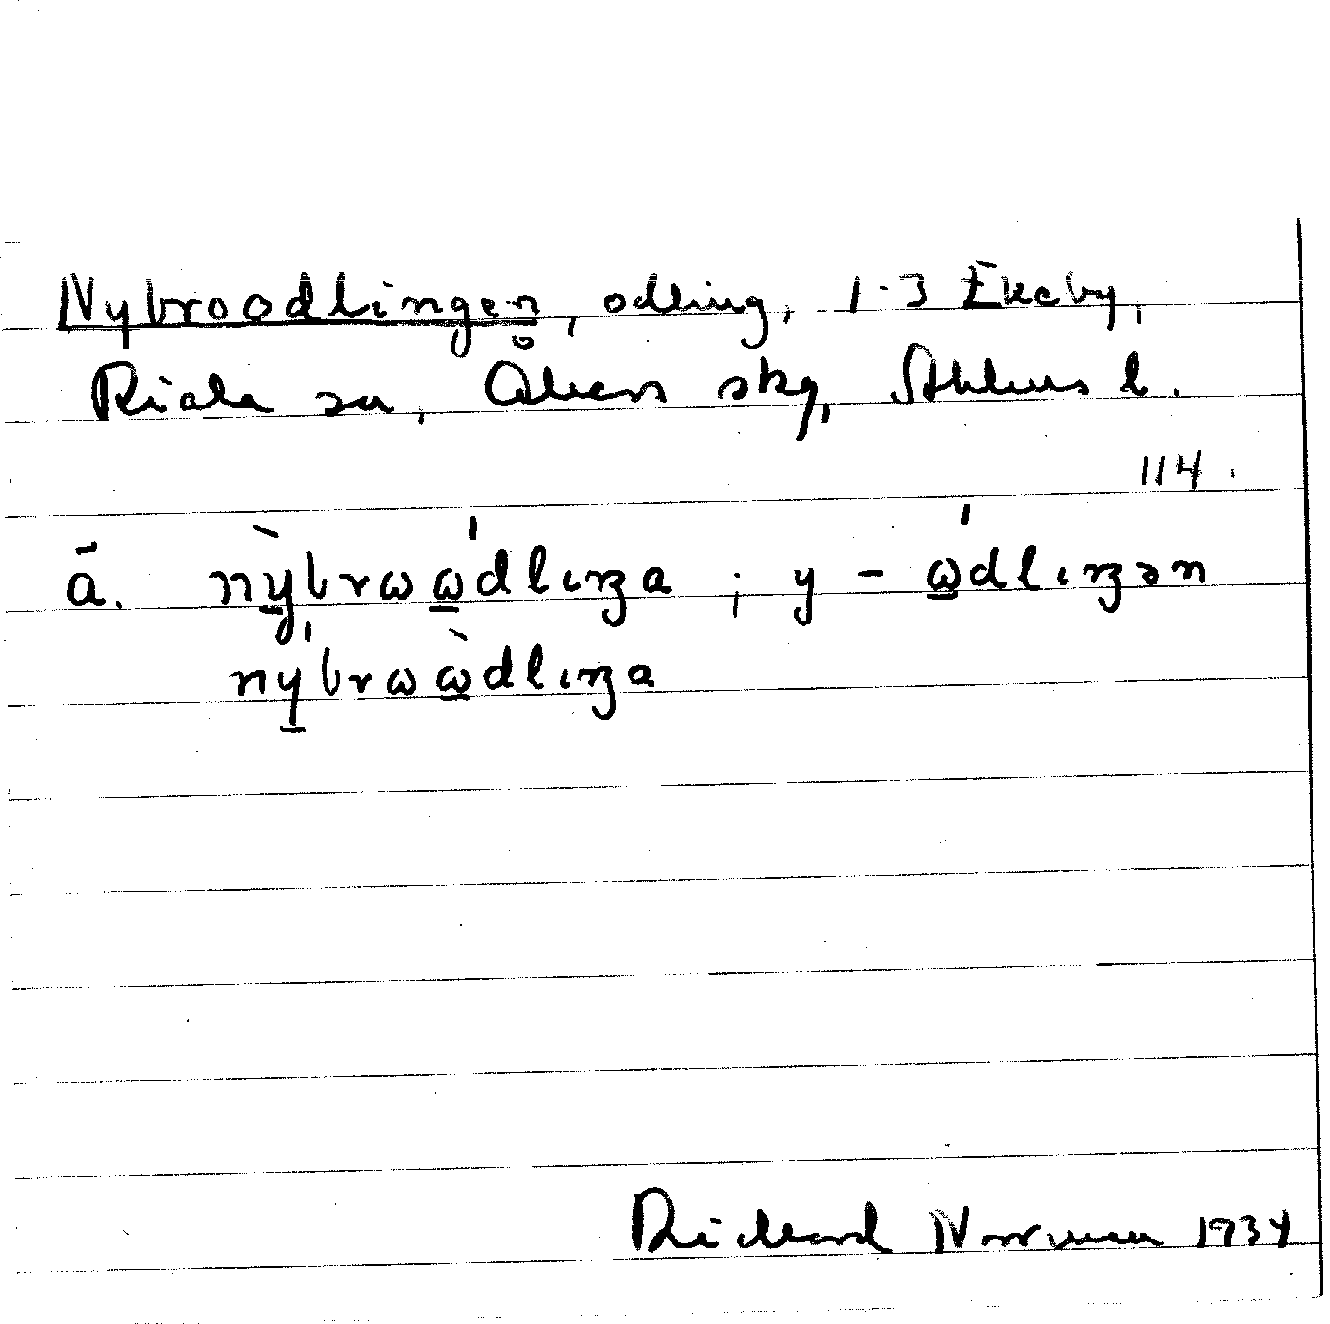 Nybroodlingen, odling, 1-3 Ekeby,
Riala sn, Åkers skg, Sthlms l.
114.
ā. nỳ̠brωώ̠dlıŋa ; y – ώ̠dlıŋən
ný̠brωὼ̠dlıŋa
Rickard Norrman 1934